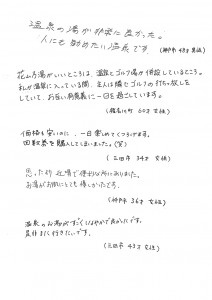 温泉の湯が非常に良かった。
人にも勧めたい温泉です。
(神戸市 48才 男性)
花山乃湯がいいところは、温泉とゴルフ場が併設しているところ。
私が温泉に入っている間、主人は隣でゴルフの打ちっ放しを
していて、お互い有意義に一日を過ごしています。
(猪名川町 60才 女性)
価格も安いのに、一日楽しめてくつろげます。
回数券を購入してしまいました。(笑)
(三田市 34才 女性)
思ったより近場で便利な所にありました。
お湯がお肌にとても優しかったです。
(神戸市 36才 女性)
温泉のお湯がすごくまろやかで良かったです。
是非また行きたいです。
(三田市 43才 女性)